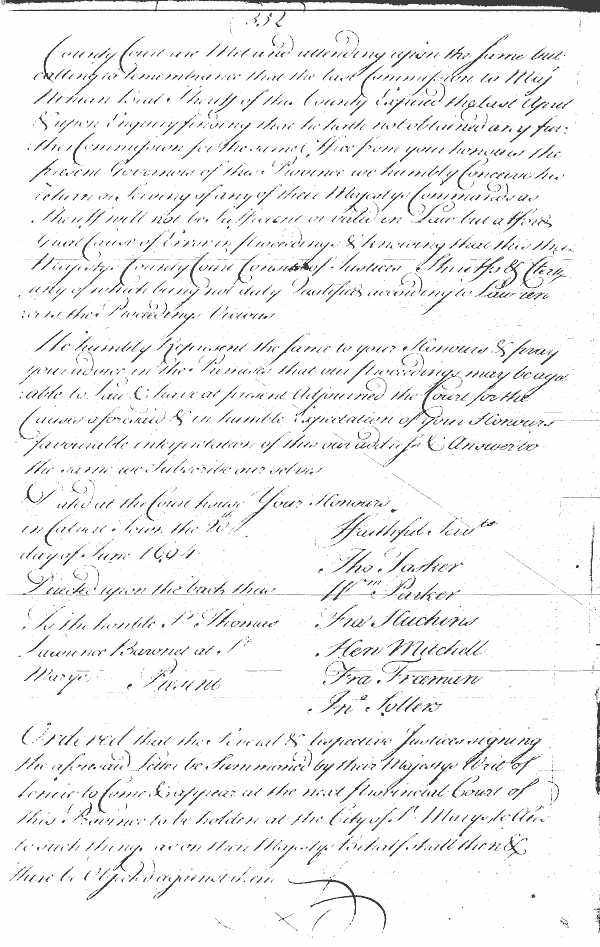 352
County Court are Met and attending upon the same but
calling to remembrance that the last Commission to Majr
Nehum Sheriff of this County Expired the last April
& upon Enquiry finding that he hath not obtained any fur:
ther Commission for the same Office from your honours the
present Governors of this Province we humbly Conceive his
return or Serving of any of their Majestys Commands as
Sheriff will not be Sufficient or valid in Law but afford
Great Cause of Error in proceedings & knowing that this their
Majestys County Court Consists of Justices Sheriffs & Clerk
any of which being not duly Qualified according to Law ren
ders the Proceedings Vicious
We humbly Represent the same to your Honours & pray
your advice in the Premises that our proceedings may be agre
able to Law & have at present Adjourned the Court for the
Causes aforesaid & in humble Expectation of your Honours
favourable interpretation of this our address & Answer to
the same we Subscribe our selves
Dated at the Court house Your Honours
in Calvert Town the 26th Faithful Servts
day of June 1694
Tho Tasher
Directed upon the back thus Wm Parker
To the honble Sr Thomas Fra Huchins
Lawrence Baronet at St Hen Mitchell
Marys Present Fra Freeman
Jno Sollers
Ordered that the Several & respective Justices signing
the aforesaid Letter be Summoned by their Majestys Writ of
Venire to Come & appear at the next Provincial Court of
this Province to be holden at the City of St Marys to Answ
to such things as on their Majestys Behalf shall then &
there be Objected against them